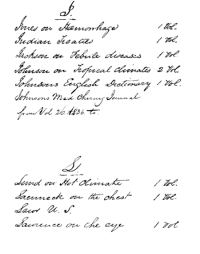 J.
Jones on Hemorrhage 1 Vol.
Indian Treaties 1 Vol.
Jackson on Febrile diseases 1 Vol
Johnson on Tropical climates 2 Vol
Johnsons English Dictionary 1 Vol.
Johnsons Med Chirurg Journal
from Vol 20 1830 to
L.
Lund on Hot Climate 1 Vol.
Laenneck on the chest 1 Vol.
Laws U. S.
Lawrence on the eye 1 Vol